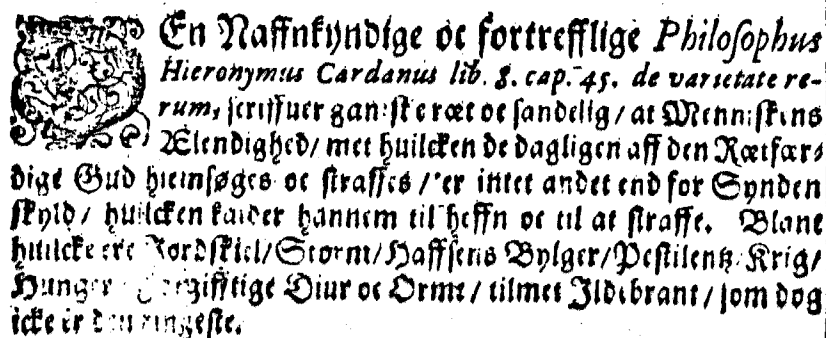 DEn Naffnkyndige oc fortrefflige Philosophus
Hieronymus Cardanus lib. 8. cap. 45. de varietate re-
rum, scriffuer ganske ræt oc sandelig / at Menniskens
Ælendighed / met huilcken de dagligen aff den Rætfær-
dige Gud hiemsøges oc straffes / er intet andet end for Synden
skyld / huilcken kalder hannem til heffn oc til at straffe. Blant
huilcke ere Jordskiel / Storm / Haffsens Bylger / Pestilentz Krig /
Hunger Forgifftige Diur oc Orme / tilmet Ildebrant / som dog
icke er den ringeste.